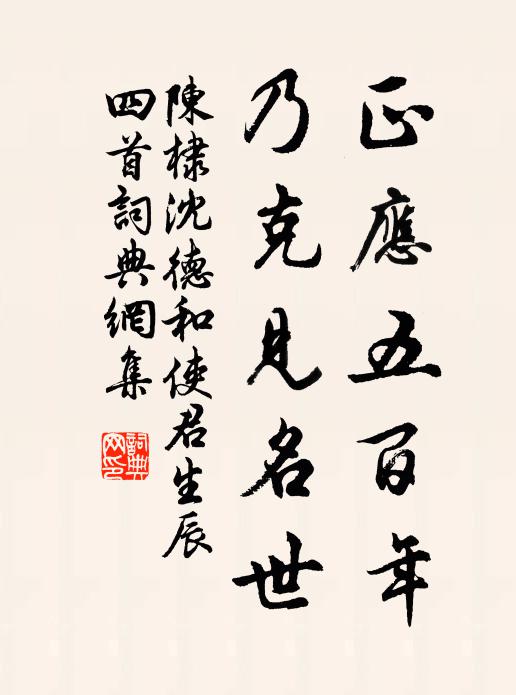 正應五百年
乃克見名世
陳棣沈德和使君生辰
四首詞典網集
詞典
网印